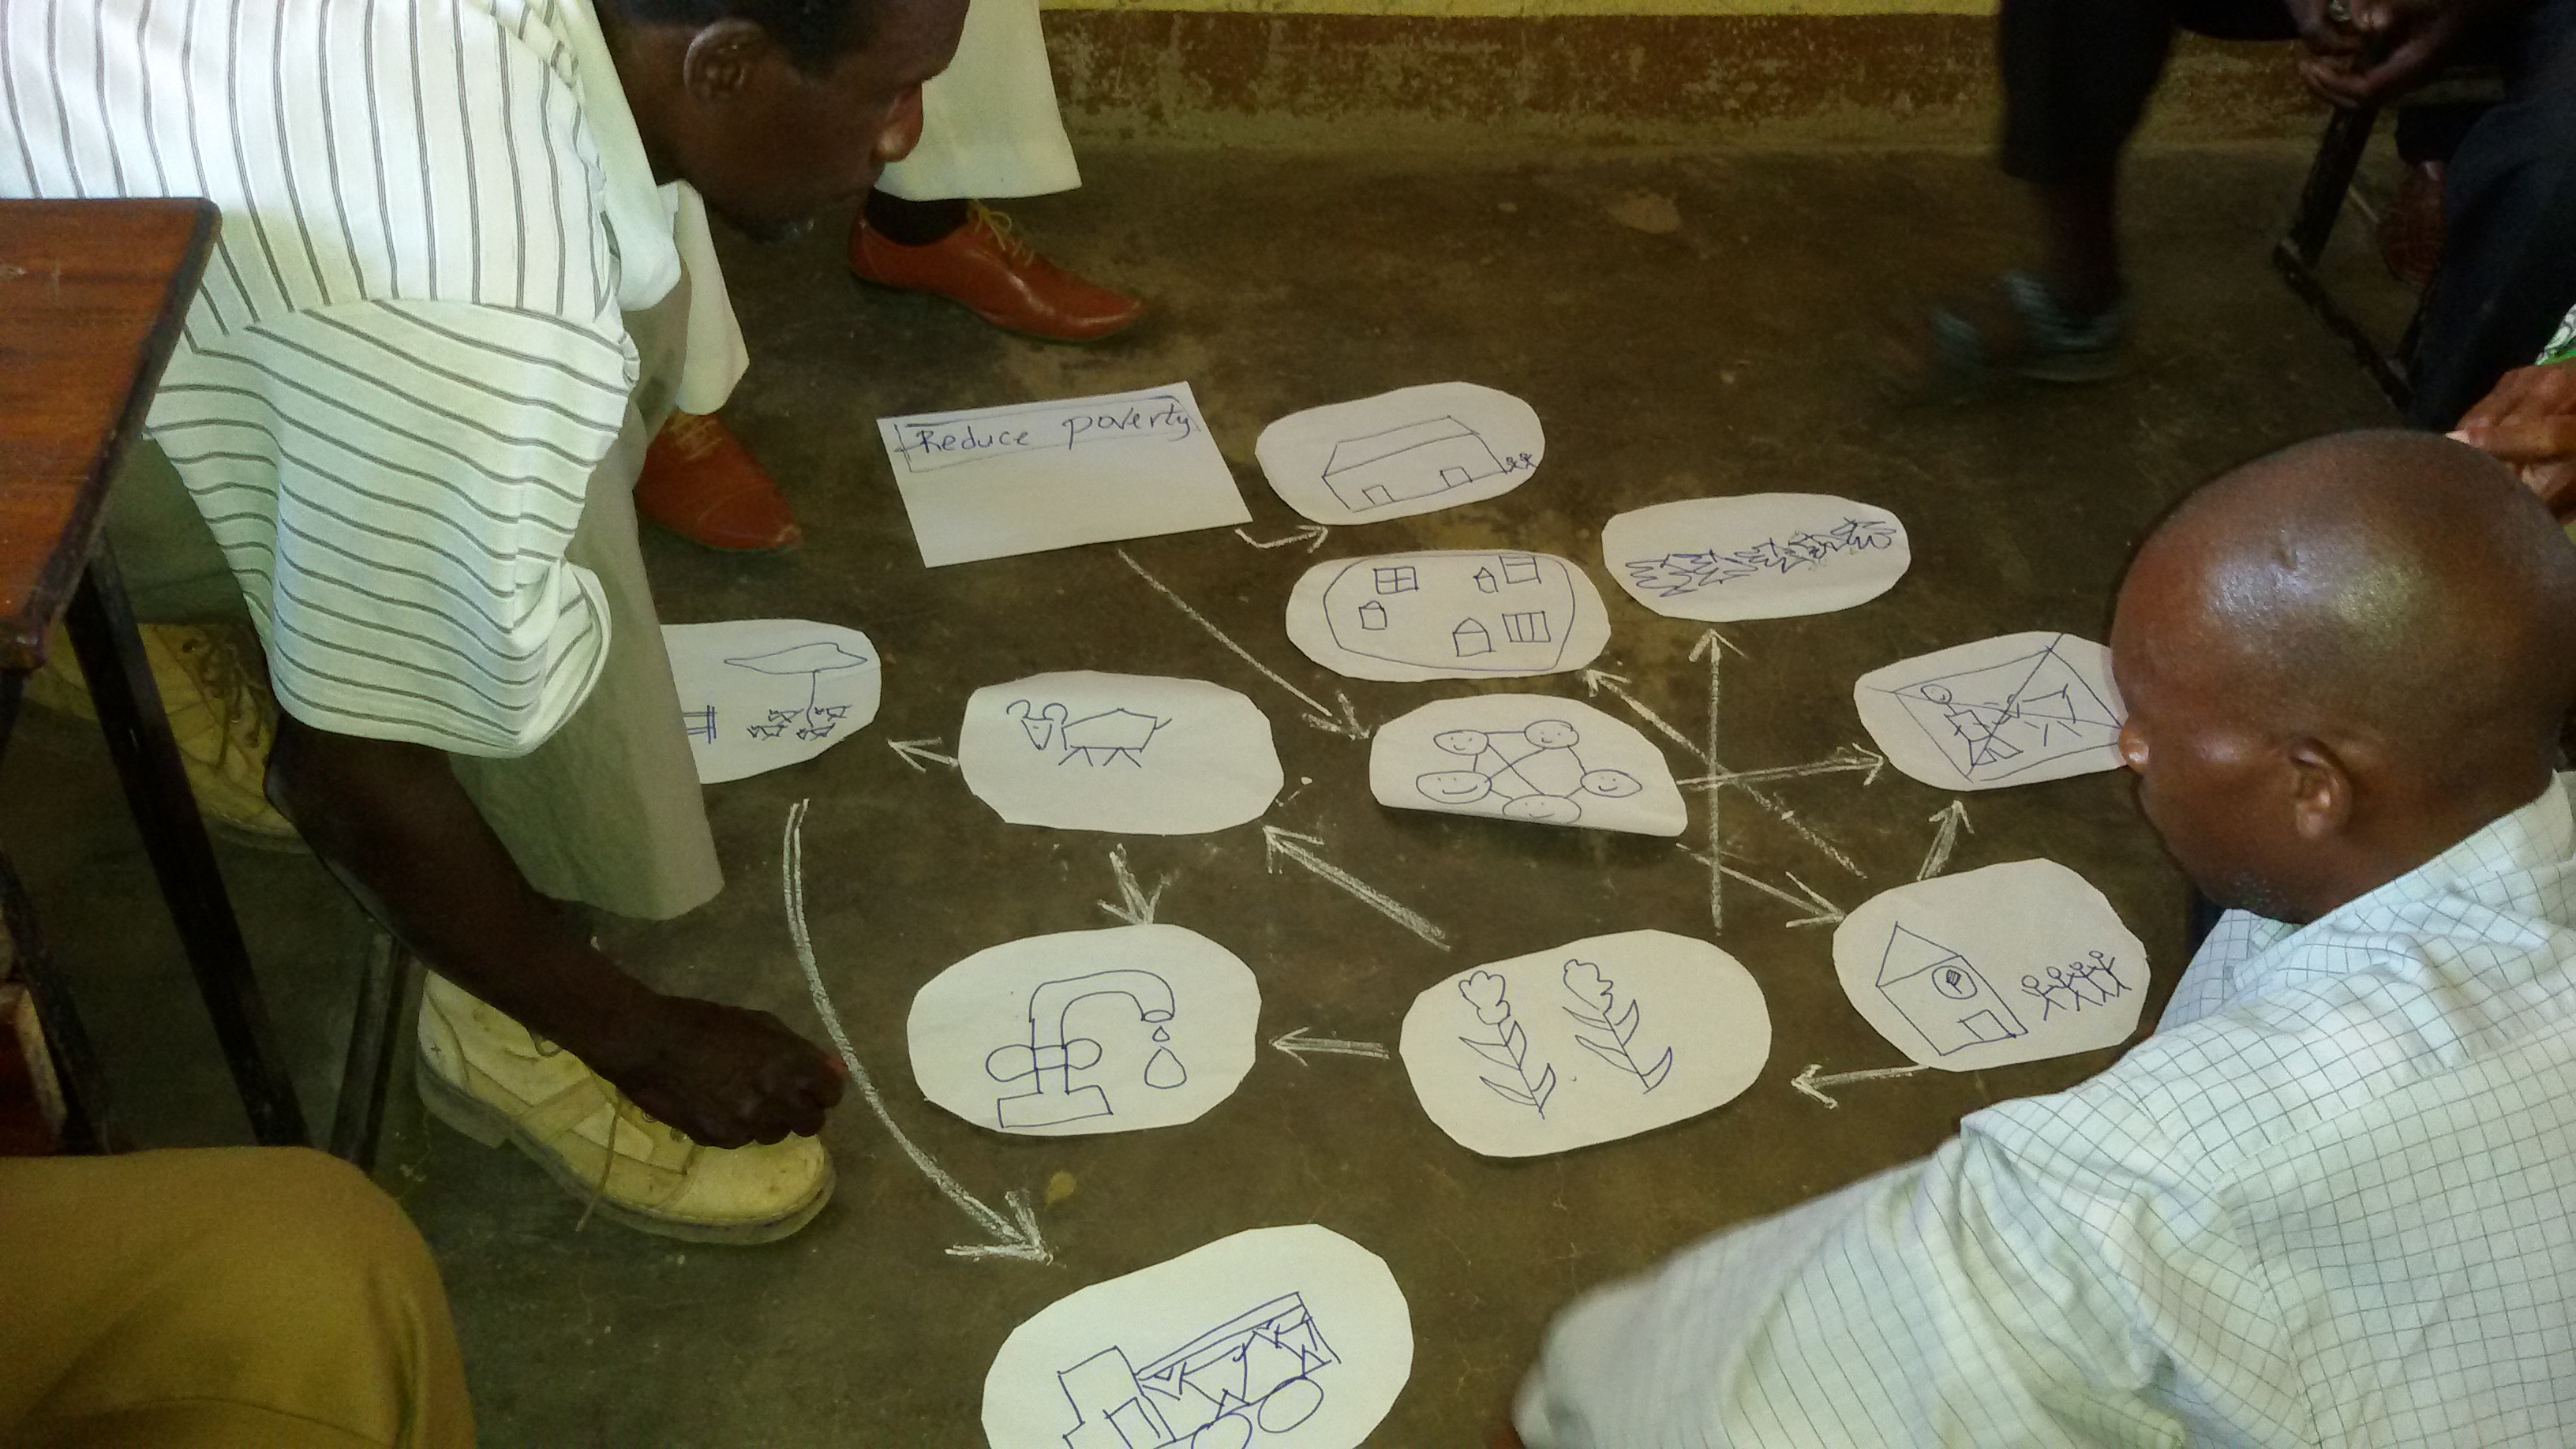 Reduce poverty